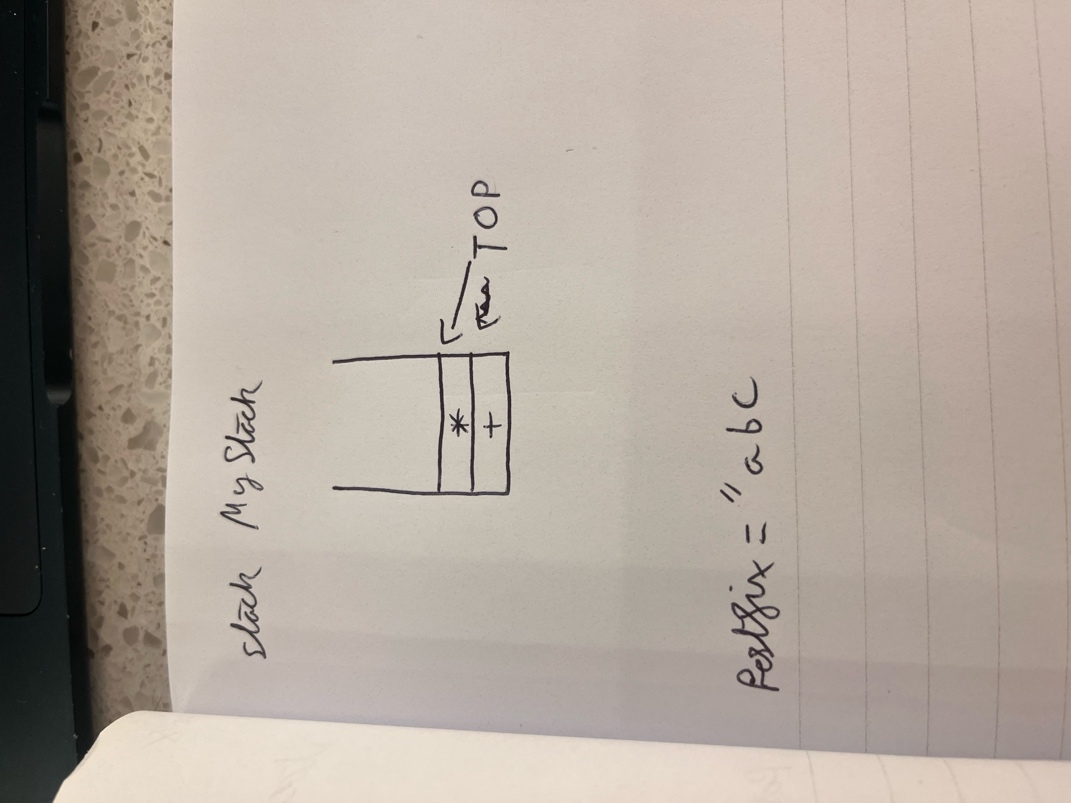 Stack My Stack
TOP
*
+
Postfix = " a b c